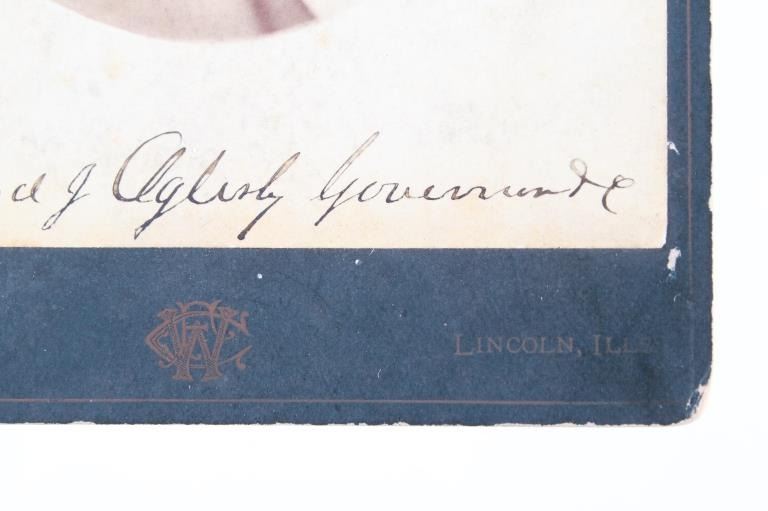 d J Oglesby Governor &c
LINCOLN, ILLS